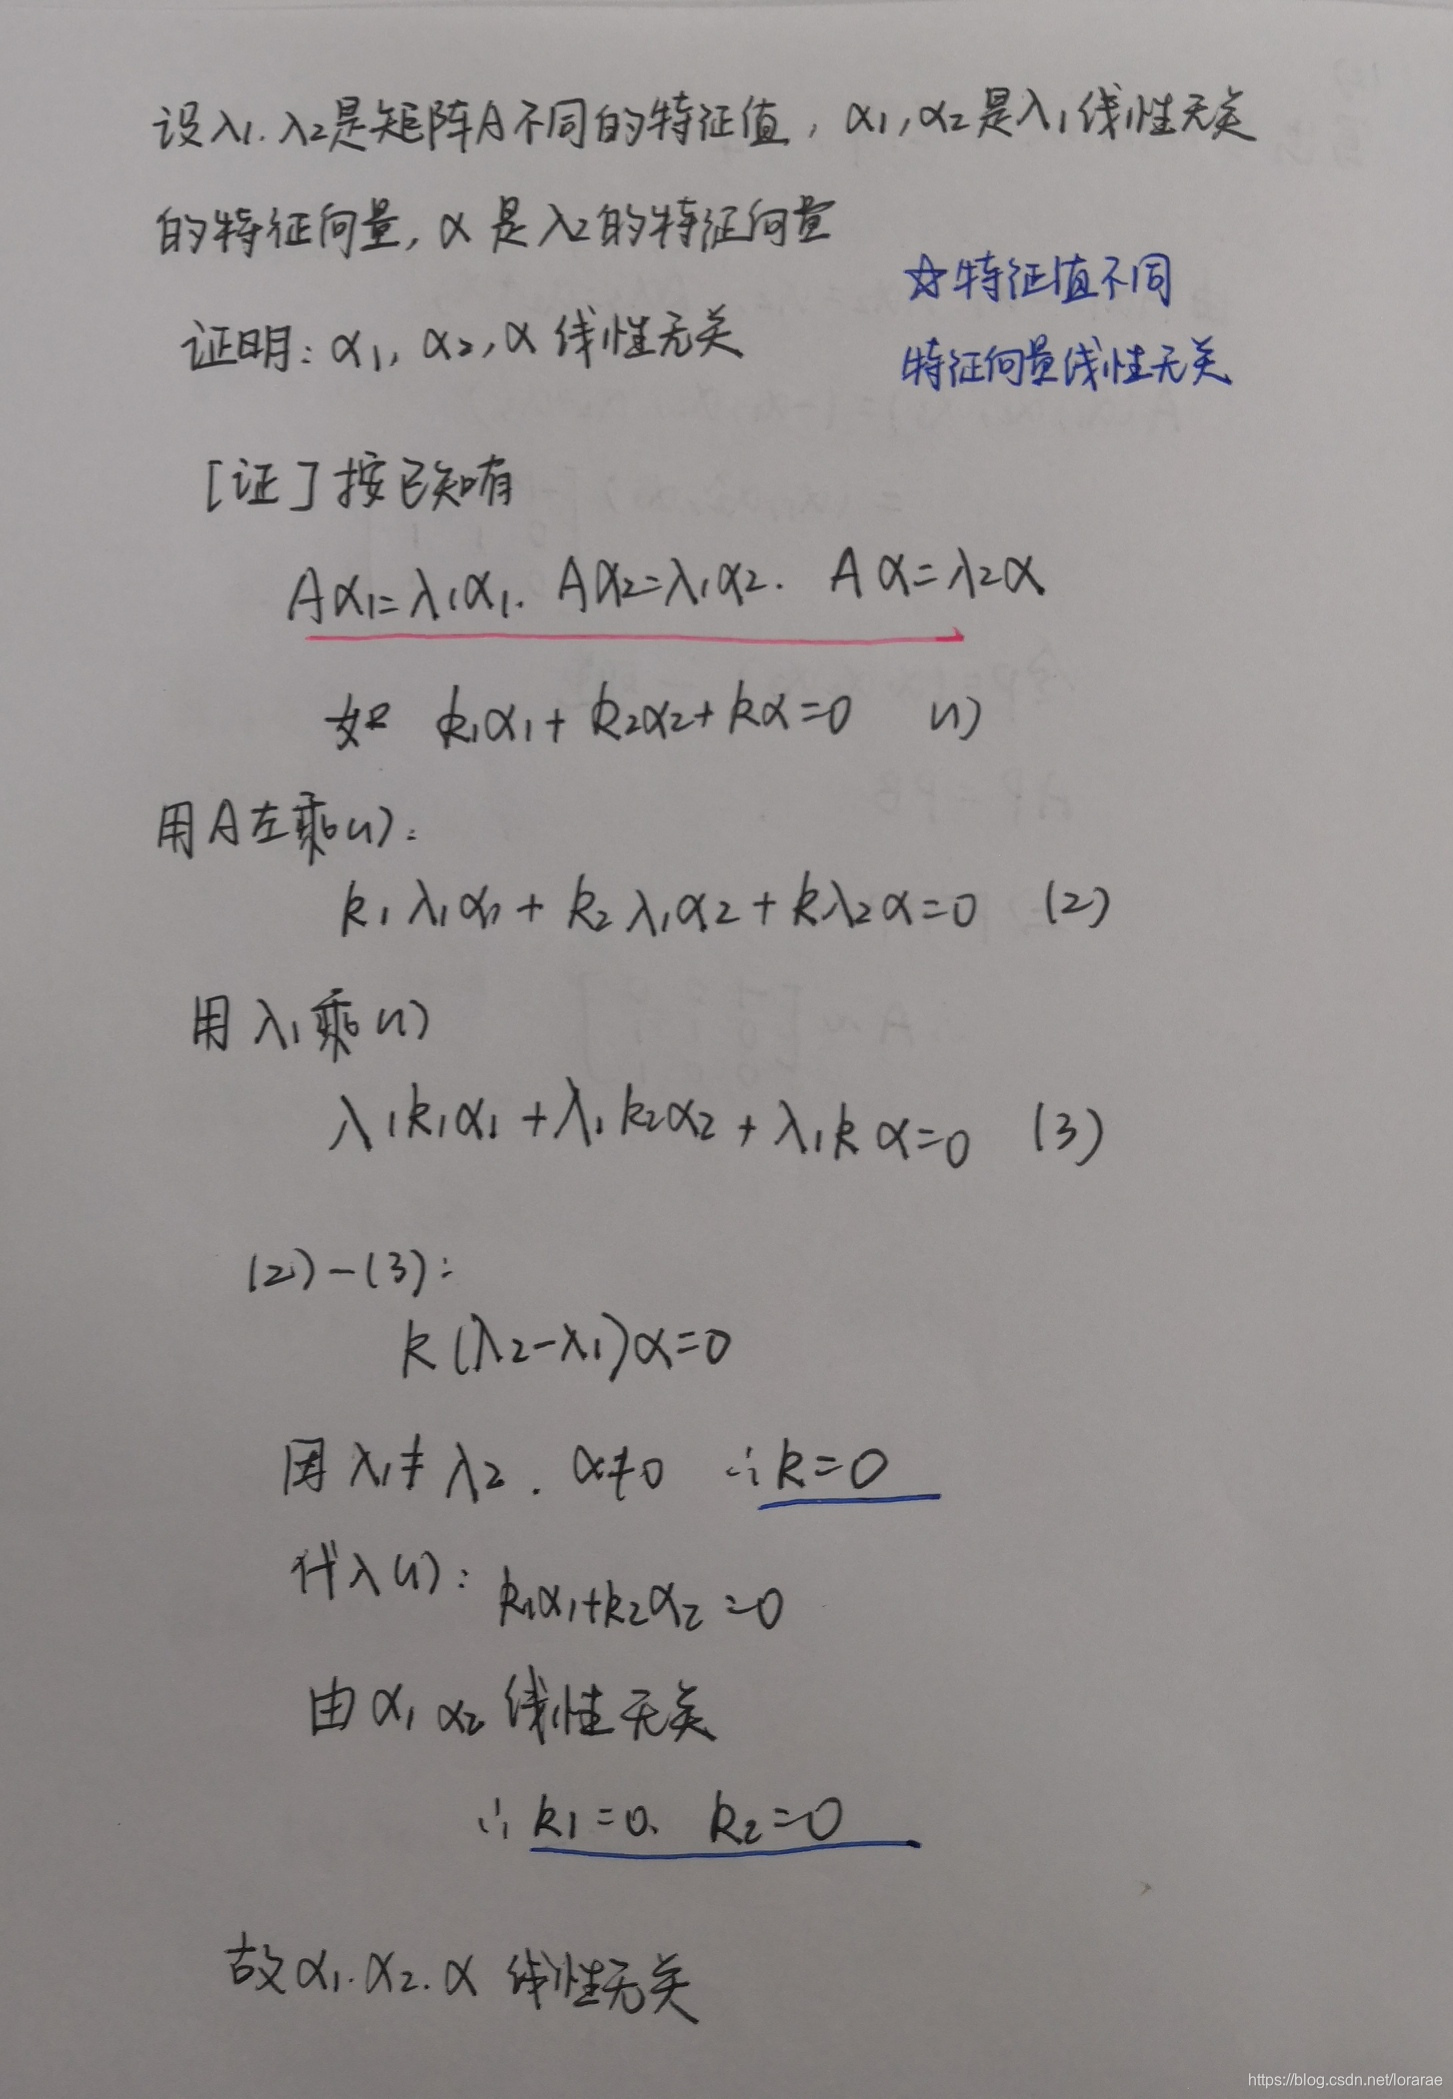 设λ1.λ2是矩阵A不同的特征值，α1,α2是λ1线性无关
的特征向量,α是λ2的特征向量
☆特征值不同
证明:α1,α2,α线性无关
特征向量线性无关
[证]按已知有
Aα1=λ1α1. Aα2=λ1α2. Aα=λ2α
如 k1α1+k2α2+kα=0 (1)
用A左乘(1):
k1λ1α1+k2λ1α2+kλ2α=0 (2)
用λ1乘(1)
λ1k1α1+λ1k2α2+λ1kα=0 (3)
(2)-(3):
k(λ2-λ1)α=0
因λ1≠λ2.α≠0 ∴k=0
代入(1): k1α1+k2α2=0
由α1 α2 线性无关
∴k1=0. k2=0
故α1.α2.α 线性无关
https://blog.csdn.net/lorarae